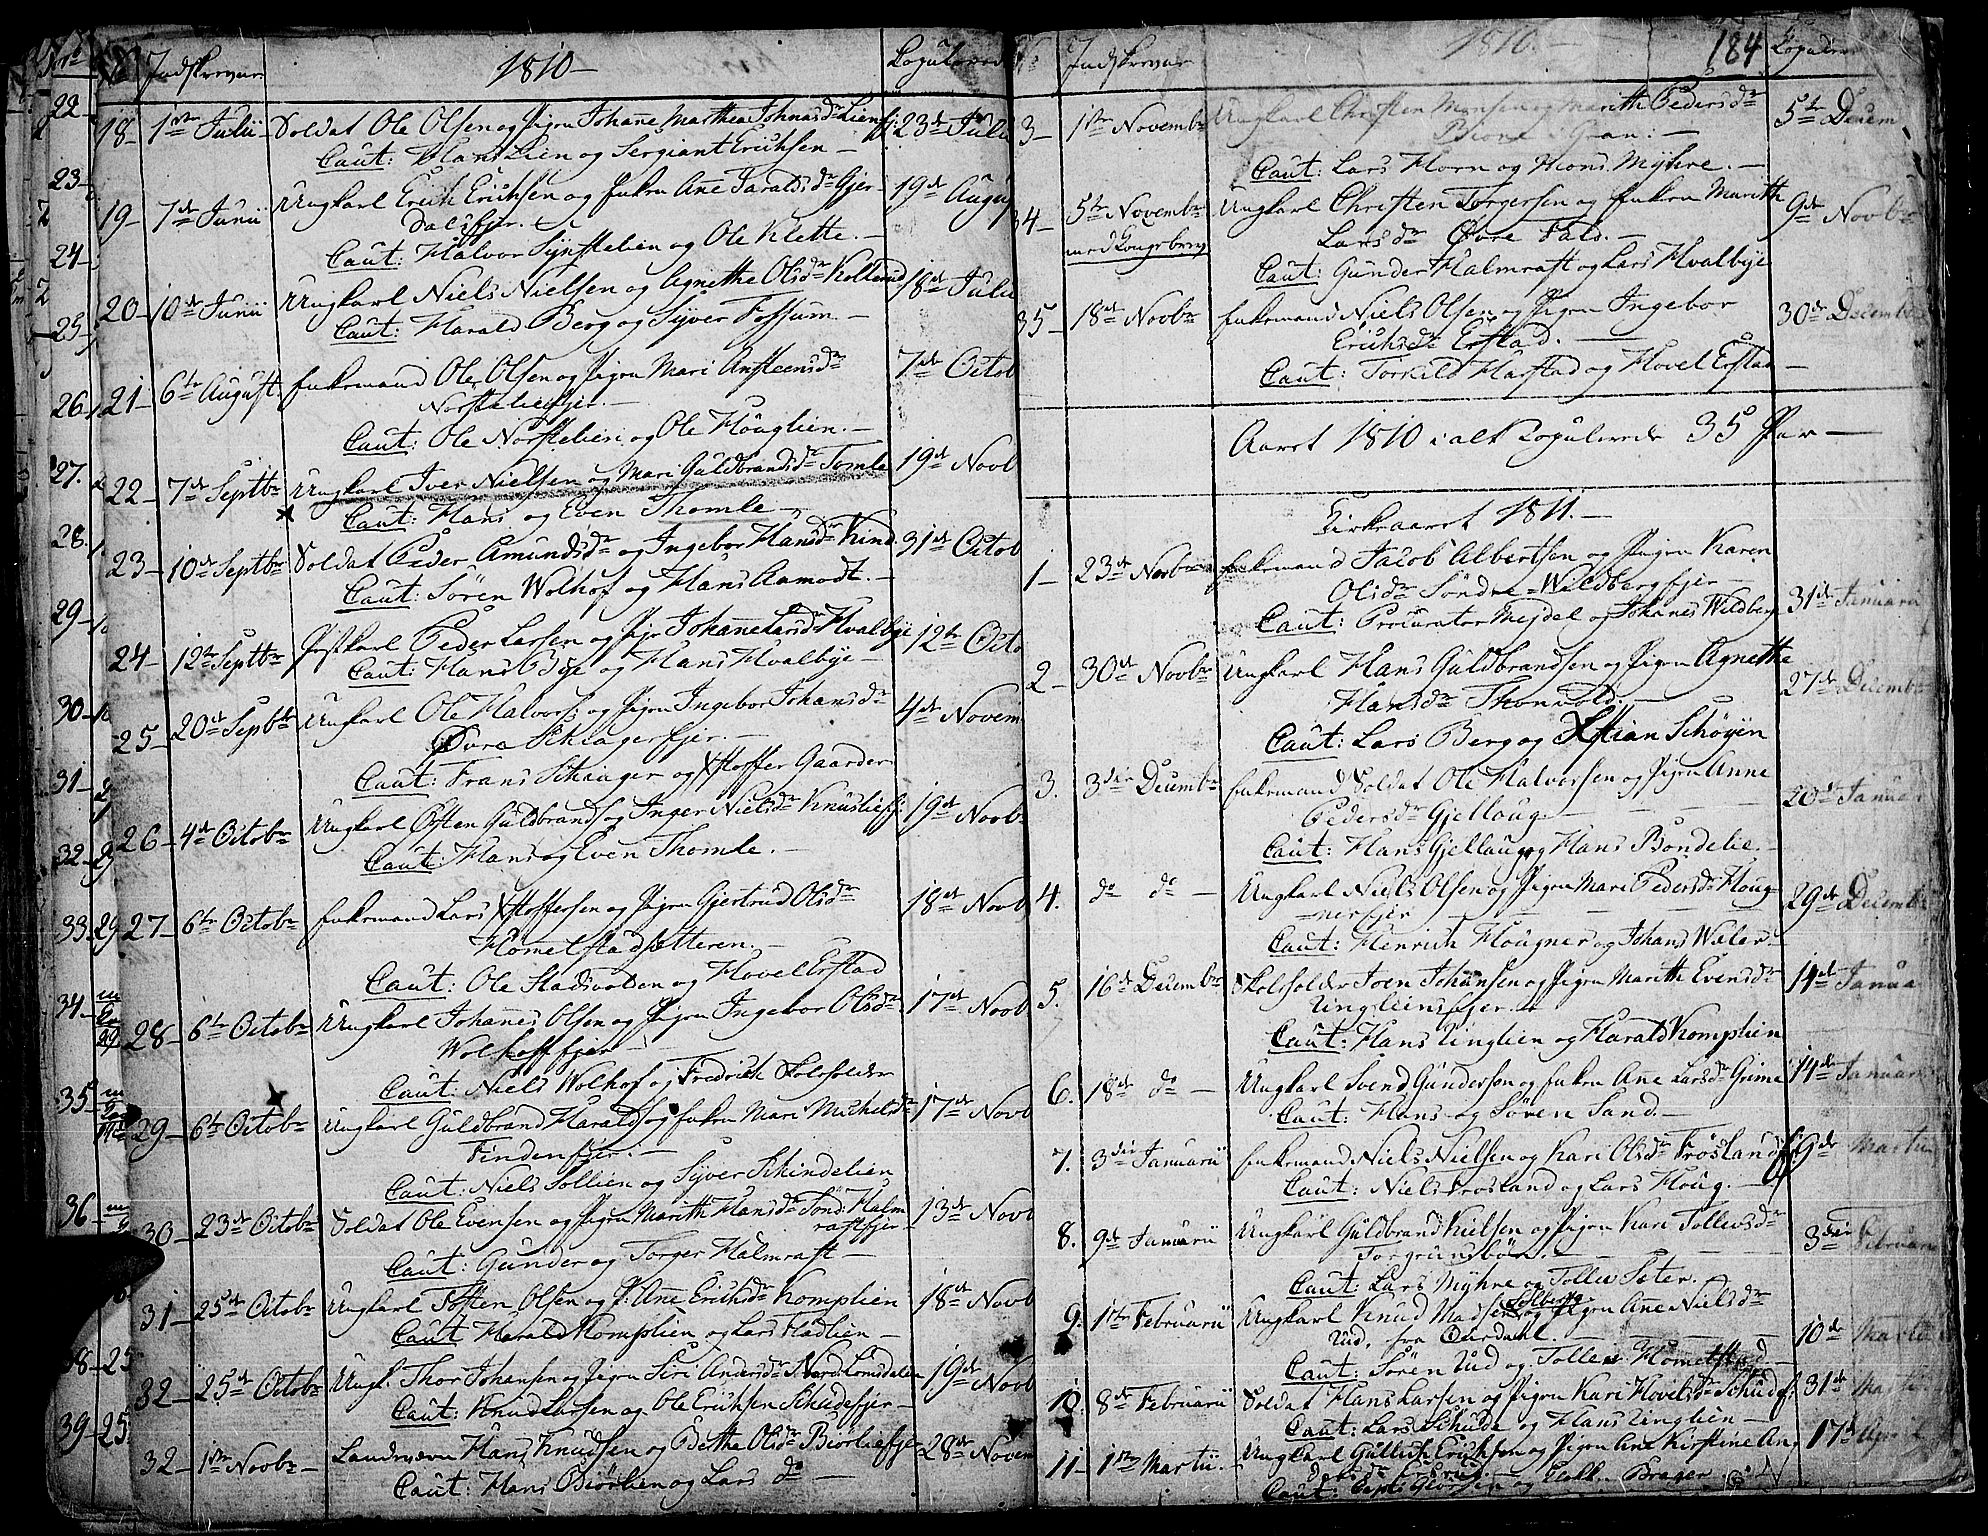 No Indskrevne 1810 — Copulerede
18 — 1ste Julii — Soldat Ole Olsen og Pigen Johane Marthea Johnsdr Lien 23de Julii
Caut: Hans Lien og Sergiant Erichsen —
19 — 7de Junii Ungkarl Erich Erichsen og Enken Ane Taraldsdr Gjer- 19de August
dalsejer. —
Caut: Halvor Synstelien og Ole Klette. —
20 — 10de Junii Ungkarl Niels Nielsen og Agnethe Olsdr Kollerud 18de Julii
Caut: Harald Berg og Syver Fossum. —
21 — 6te August. Enkemand Ole Olsen og Pigen Mari Ansteensdr 7de Octob
Norstelieejer. —
Caut: Ole Norstelien og Ole Houglien. —
22 — 7de Septbr Ungkarl Iver Nielsen og Mari Guldbrandsdr Tomle 19de Novb
Caut: Hans og Even Thomle —
23 — 10de Septbr Soldat Peder Amundsdr og Ingebor Hansdr Kind. 31de Octob
Caut: Sören Wolhof og Hans Aamodt. —
24 — 12te Septbr Peder Larsen og Pige Johanne Larsdr Hvalbye 12te Octo
Caut: Hans Bye og Hans Hvalbye —
25 — 20de Septbr Ungkarl Ole Halvors: og Pigen Ingebor Johansdr 4de Novem
Øvre Schiager ejer. —
Caut: Frans Schiager og Xstoffer Gaarder
26 — 4de Octobr Ungkarl Østen Guldbrands og Inger Nielsdr Knuslieej 19de Novbr
Caut: Hans og Even Thomle. —
27 — 6te Octobr Enkemand Lars Xstoffersen og Pigen Gjertrud Olsdr 18de Novb
Homelstadsetteren. —
Caut: Ole Stadsvolden og Hovel Erstad
28 — 6te Octobr Ungkarl Johannes Olsen og Pigen Ingebor Olsdr 17de Novb
Wolhoffejer —
Caut: Niels Wolhof og Fredrich Skoleholder
29 — 6te Octobr Ungkarl Guldbrand Haralds og Enken Mari Michelsdr 17de Novb
Finden Ejer. —
Caut: Niels Sollien og Syver Schindelien
30 — 23de Octobr Soldat Ole Evensen og Pigen Marith Hansdr Sönd: Halm 13de Novb
rastejer —
Caut: Gunder og Torger Halmrast —
31 — 25de Octobr Ungkarl Tosten Olsen og P: Ane Erichsdr Komplien 18de Novb
Caut Harald Komplien og Lars Hadlien —
32 — 25de Octobr Ungk. Thor Johansen og Pigen Siri Andersdr Nord: Lomsdalen 19de Novb
Caut: Knud Larsen og Ole Erichsen Schudeejer —
32 — 1ste Novbr — Landværn Hans Knudsen og Berthe Olsdr Biörlieejer 28de Novem
Caut: Hans Biörlien og Lars do —
22
23
24
25
26
27.
28.
29
30
31
32
33
34
35
36
38 — 25
39 — 25
No Indskrevne 1810. — 184 Copulerede
3 — 1ste Novembr Ungkarl Christen Monsen og Marith Pedersdr 5te Decem
Biöne i Gran: —
Caut: Lars Horn og Mons Myhre. —
34 — 5te Novembr Ungkarl Christen Torgersen og Enken Marithe 9de Novbr
med Kongebrev Larsdr Øvre Fald. —
Caut: Gunder Halmrast og Lars Hvalbye
35 — 18de Novbr Enkemand Niels Olsen og Pigen Ingebor 30de Decembr
Erichsdr Erstad. —
Caut: Torkild Harstad og Hovel Erstad —
Aaret 1810 i alt Copulerede 35 Par —
Kirkeaaret 1811. —
1 — 23de Novbr Enkemand Jacob Albertsen og Pigen Karen
Olsdr Söndre Wildberg Ejer — 31de Januarii
Caut: Procurator Mejdel og Johanes Wildberg
2 — 30de Novbr Ungkarl Hans Guldbrandsen og Pigen Agnethe
Hansdr Thonvold. — 27de Decembr
Caut: Lars Berg og Xstian Schöyen
3. 3die Decembr Enkemand Soldat Ole Halvorsen og Pigen Anne
Pedersdr Gjelloug. — 20de Januar
Caut: Hans Gjellaug og Hans Bondelie. —
4. do do — Ungkarl Niels Olsen og Pigen Mari Pedersdr Houg-
ner ejer — 29de Decembr
Caut: Henrich Hougner og Johans Wæler —
5. 16de Decembr Skoleholder Joen Johansen og Pigen Marithe Evensdr 14de Janua
Ungliensejer —
Caut: Hans Unglien og Harald Komplien
6. 18de do — Ungkarl Svend Gundersen og Enken Ane Larsdr Grime 14de Januari
Caut: Hans og Sören Sand. —
7. 3die Januarii Enkemand Niels Nielsen og Kari Olsdr Frösland 9de Martii
Caut: Niels Frosland og Lars Houg. —
8. 9de Januarii Ungkarl Guldbrand Nielsen og Pigen Kari Tollevsdr
Torgrunsböe. — 3die Februari
Caut: Lars Myhre og Tollev Sæter.
9. 1ste Februarii Ungkarl Knud Madsen Solberg og Pigen Ane Nielsdr
Rud, fra Aurdahl. — 10de Martii
Caut: Sören Rud og Tollev Homelstad —
10. 8de Februarii Soldat Hans Larsen og Pigen Kari Hovelsdr Schudej: 31de Martii
Caut: Lars Schude og Hans Unglien —
11 — 1ste Martii. Ungkarl Gullich Erichsen og Pigen Ane Kirstine An 17de April
Caut: Capt: og Brager